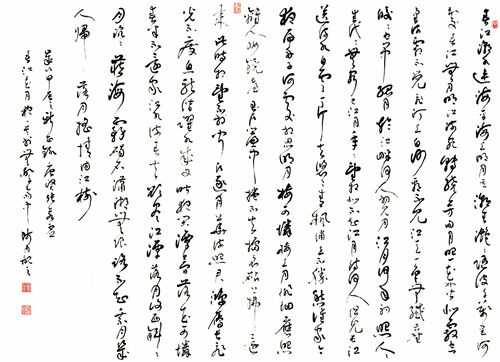 春江潮水連海平海上明月共潮生灩灩隨波千萬里何
處春江無月明江流宛轉繞芳甸月照花林皆似霰空
里流霜不覺飛汀上白沙看不見江天一色無纖塵
皎皎空中孤月輪江畔何人初見月江月何年初照人人
生代代無窮已江月年年望相似不知江月待何人但見長江
送流水白雲一片去悠悠青楓浦上不勝愁誰家今
夜扁舟子何處相思明月樓可憐樓上月徘徊應照
離人妝鏡臺玉戶簾中捲不去搗衣砧上拂還
來此時相望不相聞願逐月華流照君鴻雁長飛
光不度魚龍潛躍水成文昨夜閑潭夢落花可憐
春半不還家江水流春去欲盡江潭落月復西斜斜
月沉沉藏海霧碣石瀟湘無限路不知乘月幾
人歸落月搖情滿江樹
唐張若虛
春江花月夜